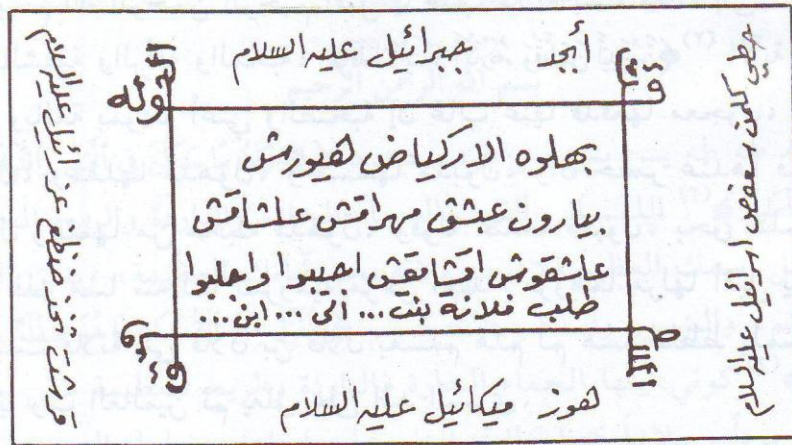 أبجد جبرائيل عليه السلام
قوله الحق وله الملك
بهلوه الاركياض لهيورش
بيارون عبشق مهراقش علشاقش
عاشقوش اقشامقش اجيبو واجلبوا
طلب فلانة بنت... الى... ابن...
هوز ميكائيل عليه السلام
حطي كلمن سعفص اسرافيل عليه السلام
قرشت ثخذ ضظغ عزرائيل عليه السلام